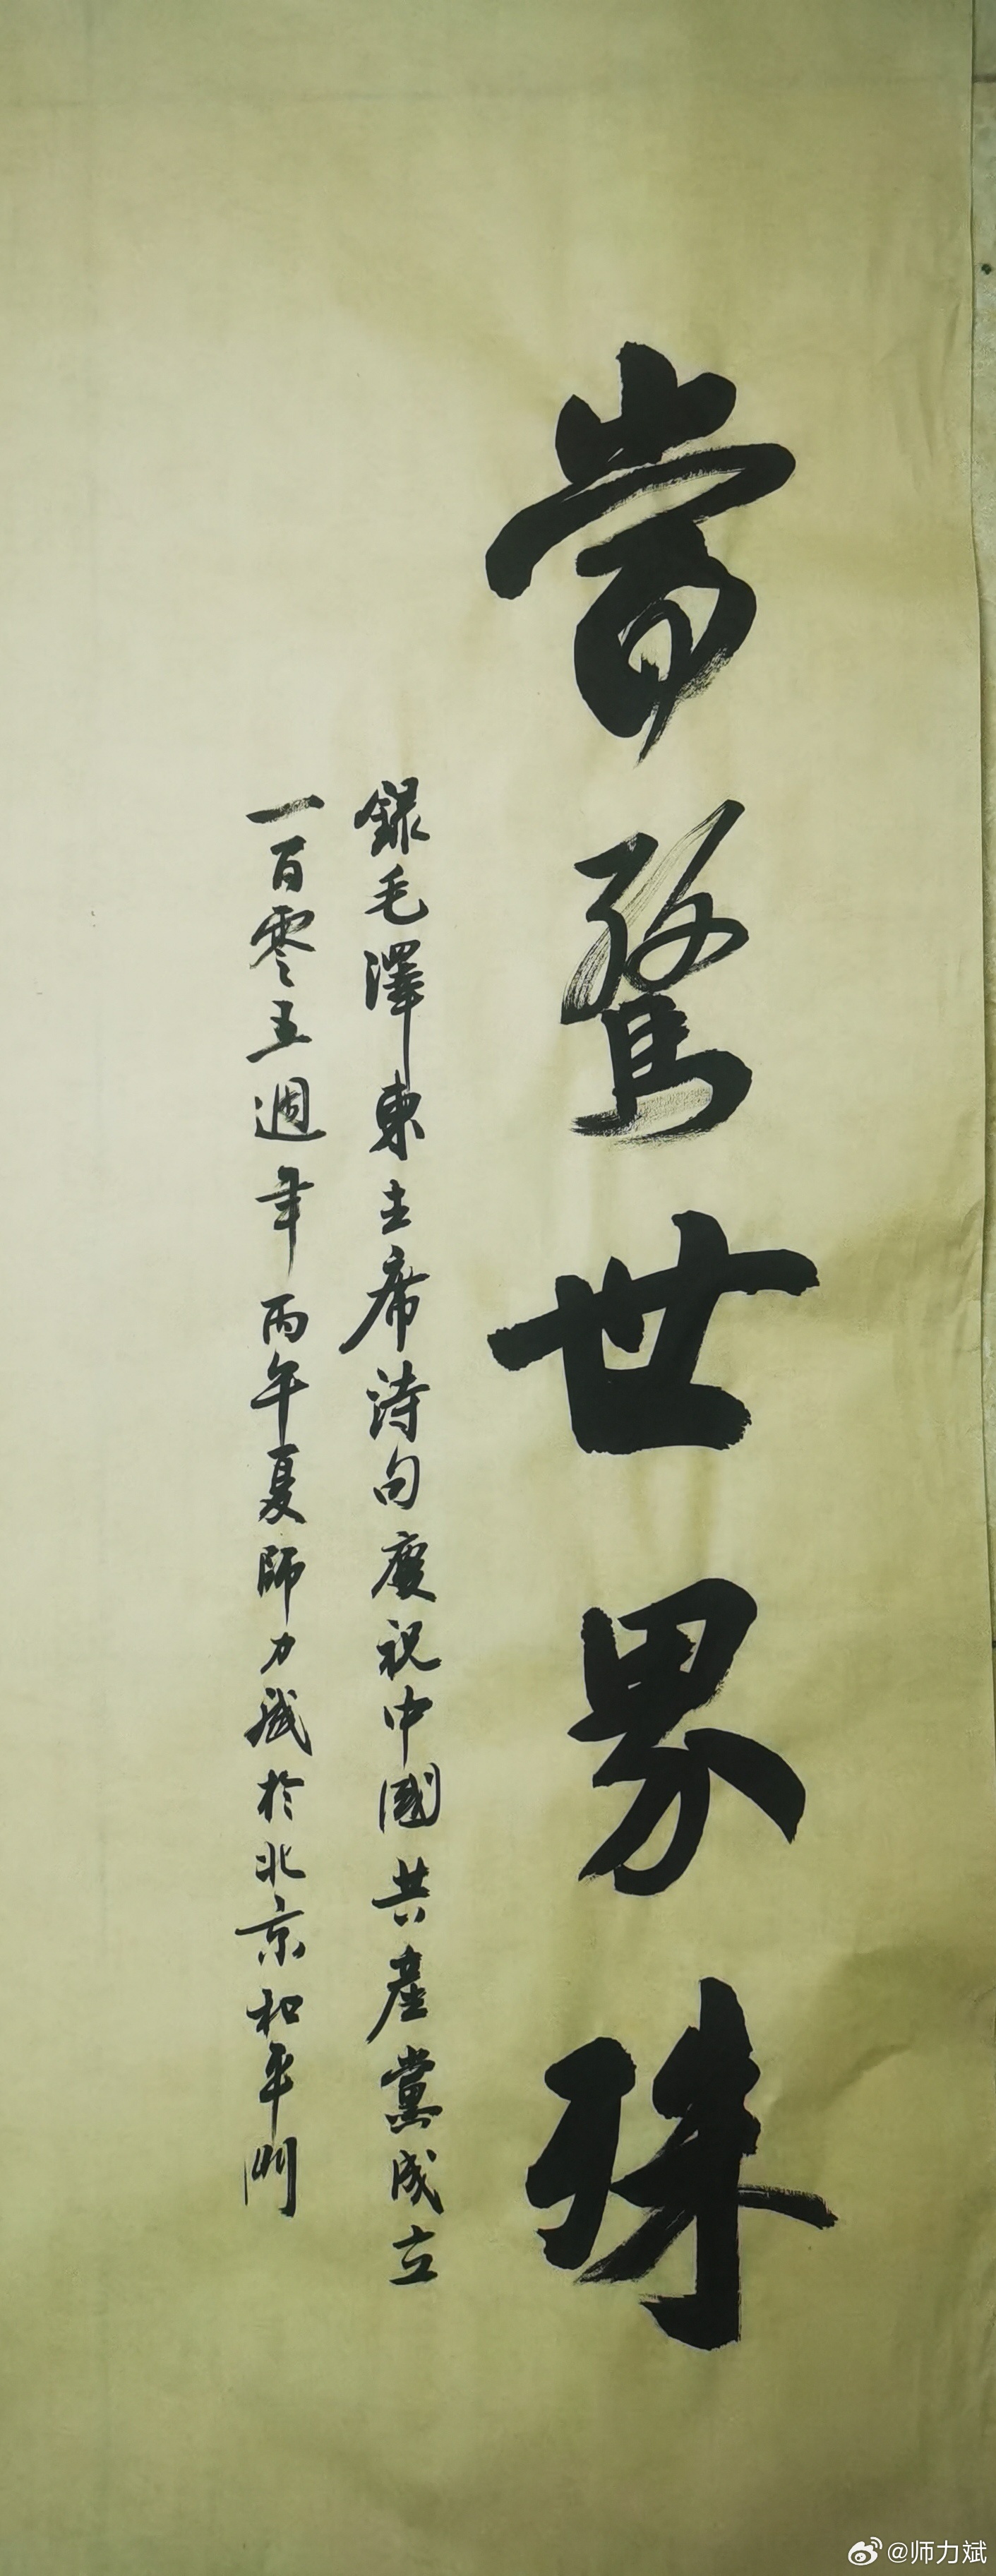 當驚世界殊
錄毛澤東主席詩句慶祝中國共產黨成立
一百零五週年 丙午夏師力斌於北京和平門
@师力斌